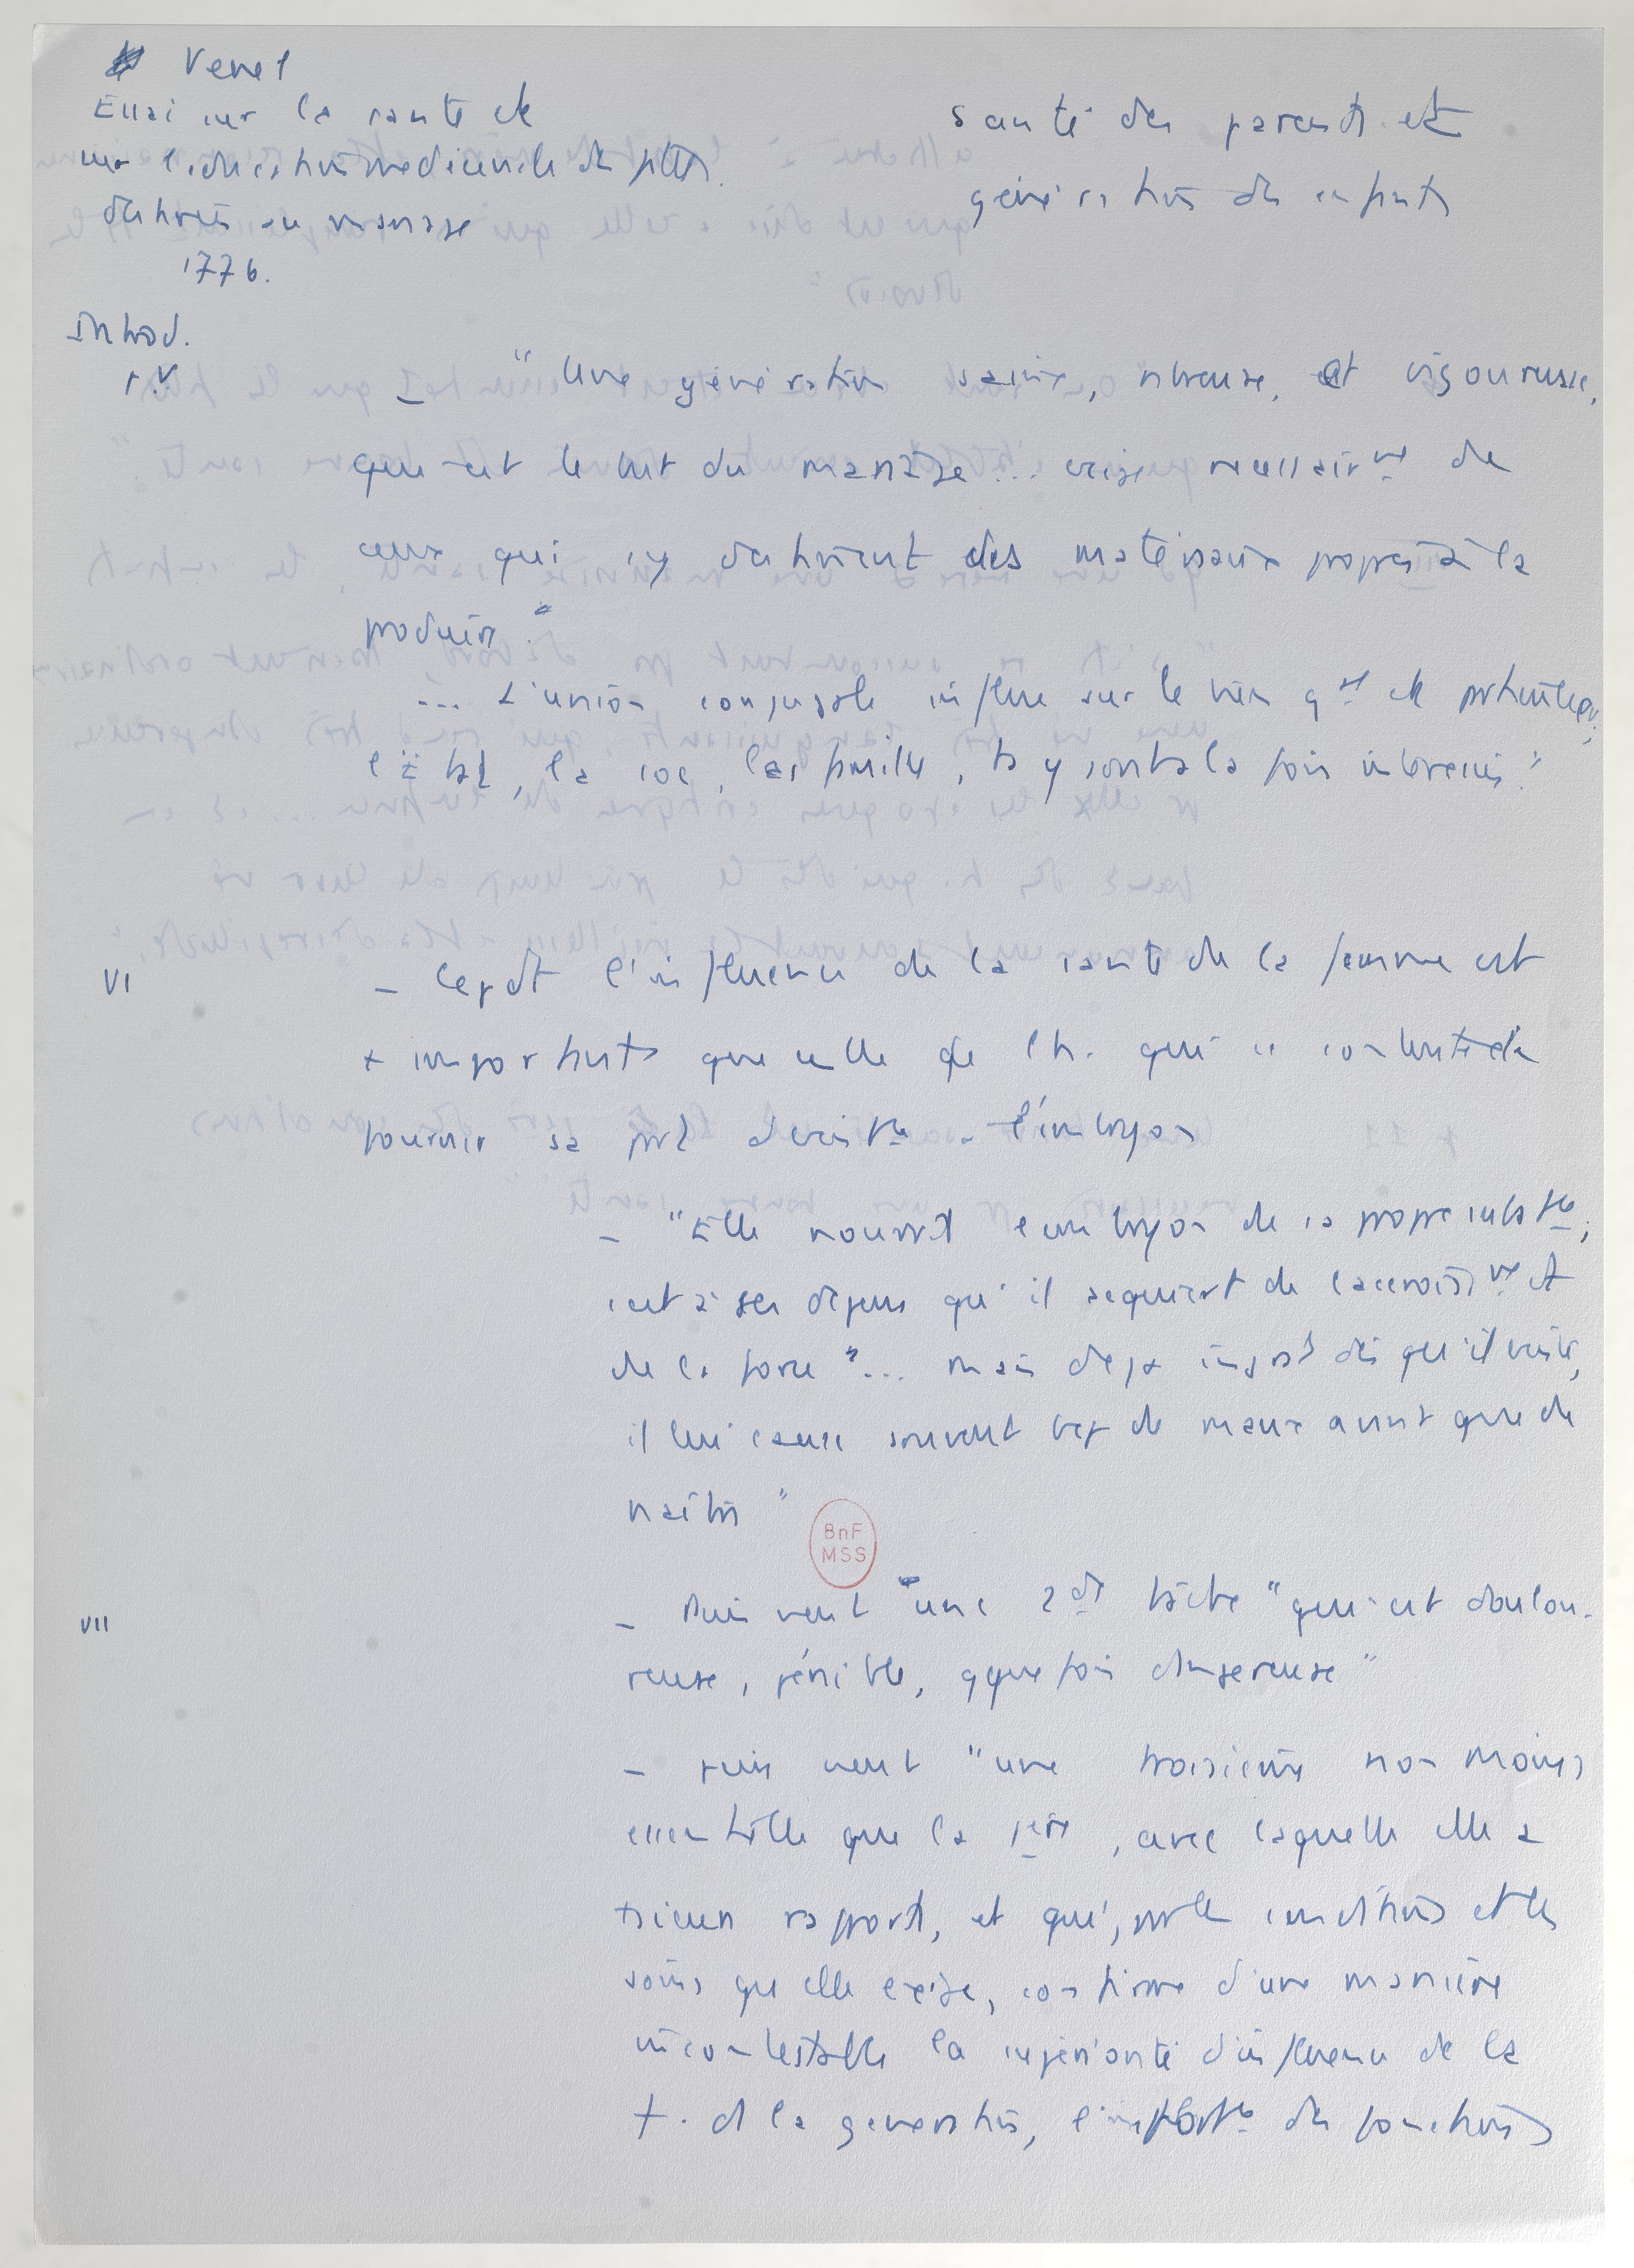 Venel
Essai sur la santé et
sur l'education medicinale des filles
destinées au mariage
1776.
Santé des parents et
génération des enfants
Introd.
p. V.
- "Une génération saine, nbreuse, et vigoureuse,
qui est le but du mariage... exige necessairmt de
ceux qui s'y destinent des matériaux propres à la
produire."
... L'union conjugale influe sur le bien gal et particulier;
l'état, la soc, les familles, ts y sont à la fois intéressés"
VI
- Cepdt l'influence de la santé de la femme est
+ importante que celle de l'h. qui se contente de
fournir sa part à l'embryon
- "Elle nourrit l'embryon de sa propre subste;
c'est à ses dépens qu'il acquiert de l'accroissmt et
de la force"... mais déjà ingrat dès qu'il existe,
il lui cause souvent bcp de maux avant que de
naître"
BnF
MSS
VII
- Puis vient une 2de tâche "qui est doulou-
reuse, pénible, qquefois dangereuse"
- puis vient "une troisième non moins
essentielle que la 1ère, avec laquelle elle a
rapport, et qui, par les conditions et les
soins qu'elle exige, confirme d'une manière
incontestable la supériorité d'influence de la
f. ds la generation, l'importce des fonctions